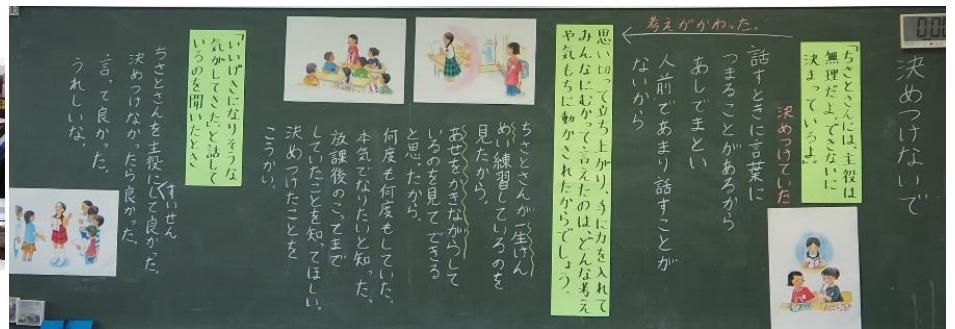 決めつけないで
「ちさとさんには、主役は
無理だよ。できないに
決まっているよ。」
決めつけていた
話すときに言葉に
つまることがあるから
あしでまとい
人前であまり話すことが
ないから
考えがかわった。
思い切って立ち上がり、手に力を入れて
みんなにむかって言えたのは、どんな考え
や気もちに動かされたからでしょう。
ちさとさんが一生けん
めい練習しているのを
見たから。
あせをかきながらして
いるのを見てできる
と思ったから。
何度も何度もしていた。
本気でなりたいと知った。
放課後のこってまで
していたことを知ってほしい。
決めつけたことを
こうかい。
「いいげきになりそうな
気がしてきた」と話して
いるのを聞いたとき
ちさとさんを主役にして良かった。
すいせん
決めつけなかったら良かった。
言って良かった。
うれしいな。